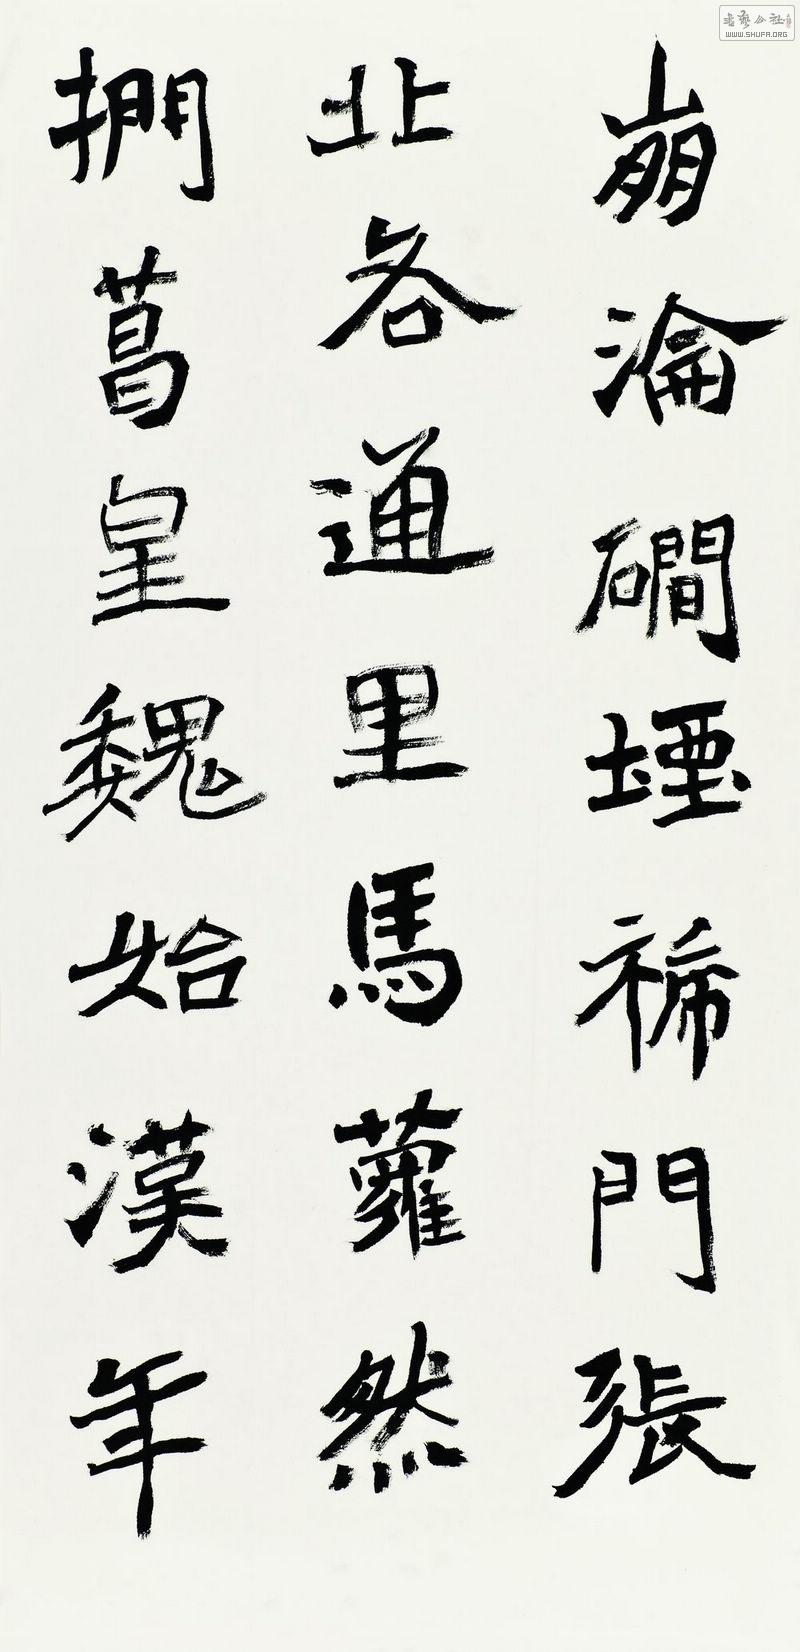 崩淪磵堙禘門張
北各通里馬蘿然
捫菖皇魏始漢年
書藝公社
WWW.SHUFA.ORG